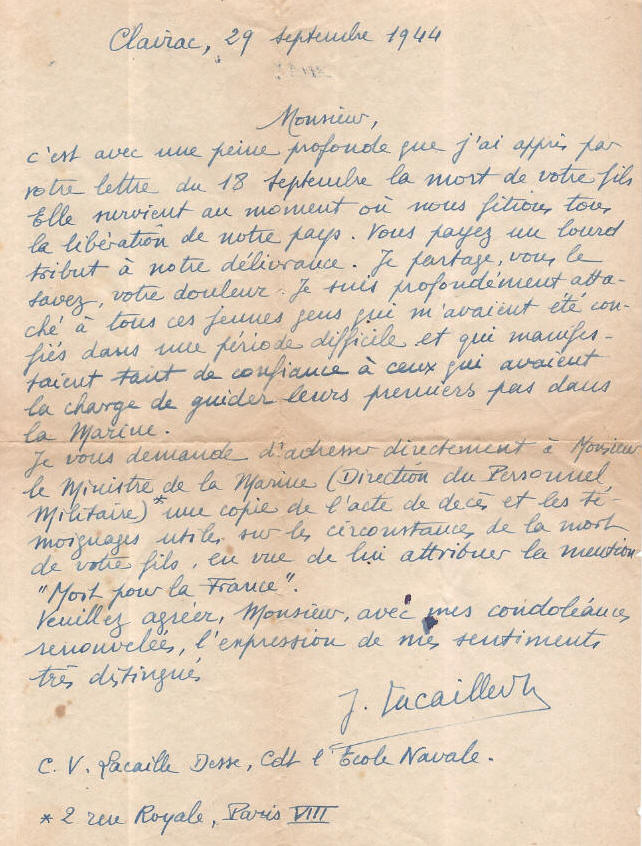 Clairac, 29 septembre 1944
Monsieur,
c'est avec une peine profonde que j'ai appris par
votre lettre du 18 septembre la mort de votre fils
Elle survient au moment où nous fêtions tous
la libération de notre pays. Vous payez un lourd
tribut à notre délivrance. Je partage, vous le
savez, votre douleur. Je suis profondément atta-
ché à tous ces jeunes gens qui m'avaient été con-
fiés dans une période difficile et qui manifes-
taient tant de confiance à ceux qui avaient
la charge de guider leurs premiers pas dans
la Marine.
Je vous demande d'adresser directement à Monsieur
le Ministre de la Marine (Direction du Personnel
Militaire)* une copie de l'acte de decès et les té-
moignages utiles sur les circonstances de la mort
de votre fils, en vue de lui attribuer la mention
"Mort pour la France".
Veuillez agréer, Monsieur, avec mes condoléances
renouvelées, l'expression de mes sentiments
très distingués
C. V. Lacaille Desse, Cdt l'École Navale.
* 2 rue Royale, Paris VIII